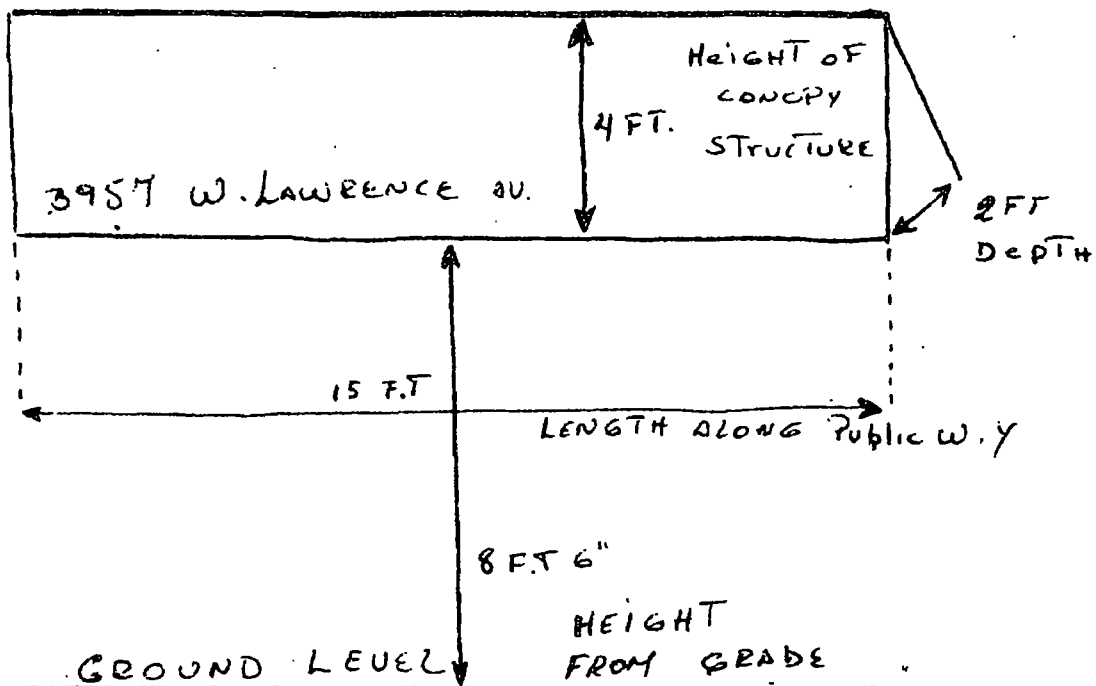 HEIGHT OF
CONOPY
STRUCTURE
4 FT.
3957 W. LAWRENCE AU.
2FT
DEPTH
15 F.T
LENGTH ALONG Public W.Y
8 F.T 6"
HEIGHT
FROM GRADE
GROUND LEVEL